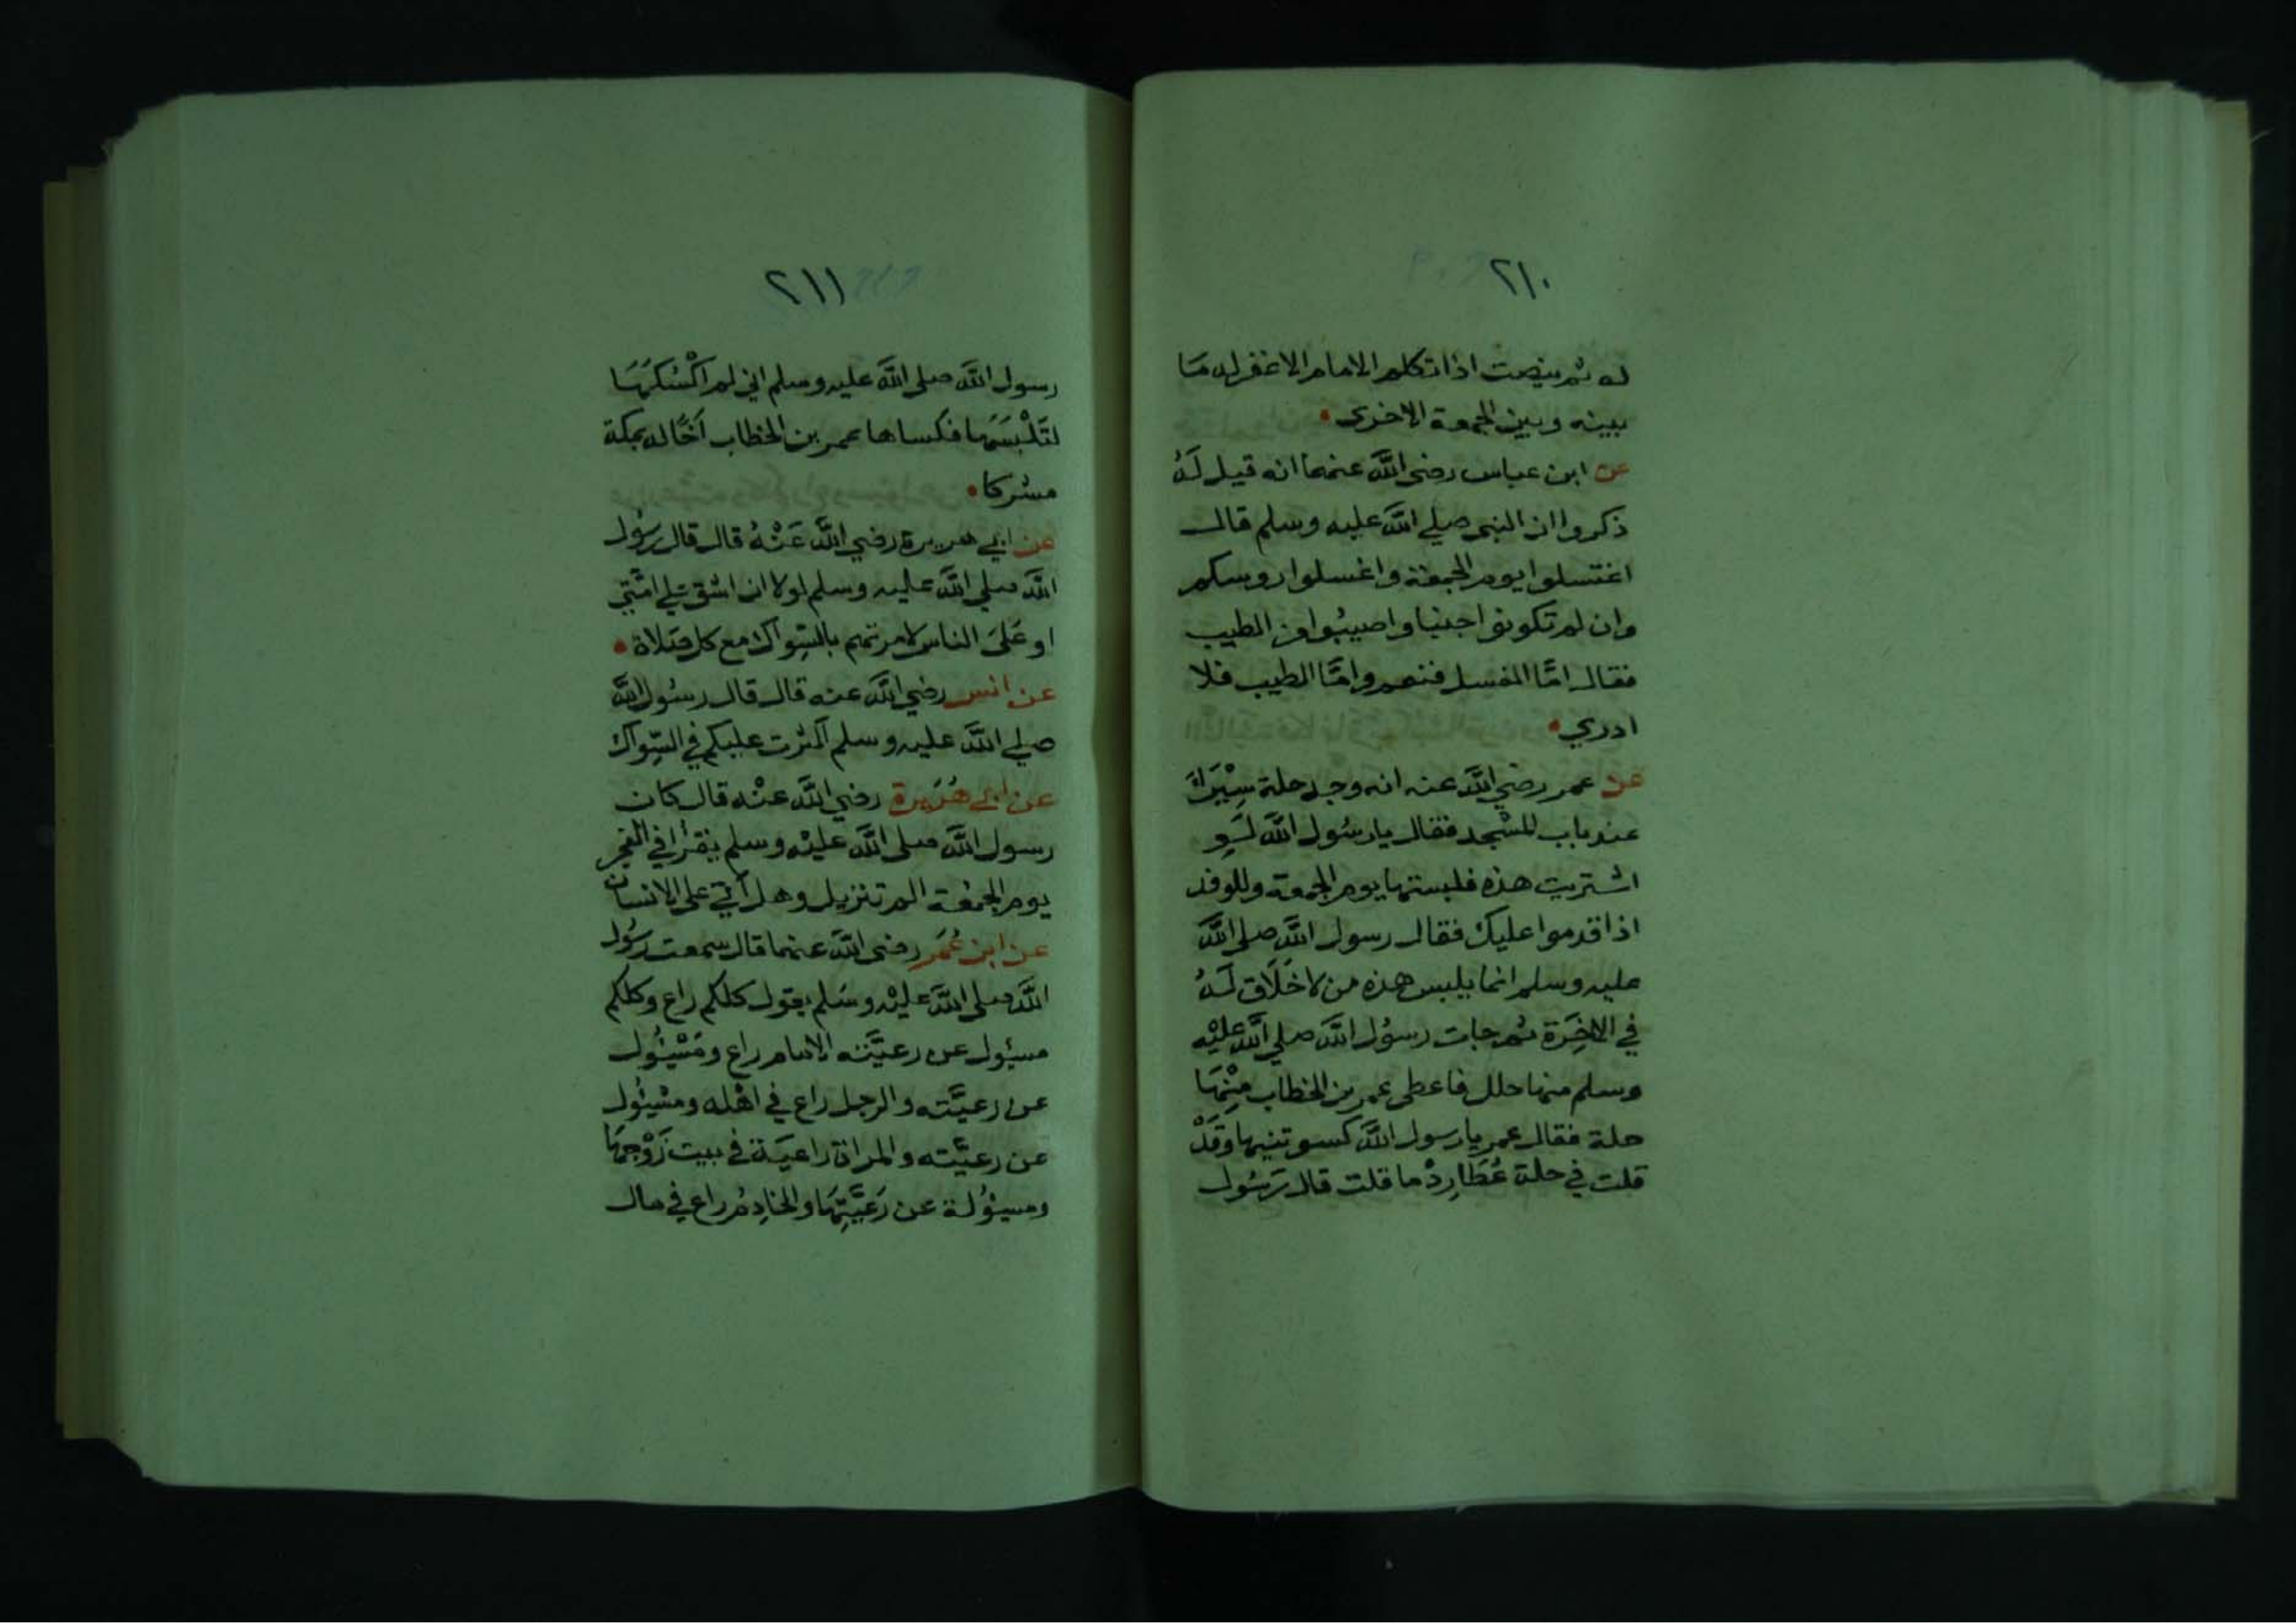 ٢١٠
له ثم ينصت اذا تكلم الامام الا غفر له مَا
بينه وبين الجمعة الاخرى
عن ابن عباس رضي اللَّه عنهما انه قيل لَهُ
ذكروا ان النبي صلى اللَّه عليه وسلم قال
اغتسلوا يوم الجمعة واغسلوا روسكم
وان لم تكونوا جنبا واصيبُوا من الطيب
فقال امَّا الغسل فنعم وامَّا الطيب فلا
ادري
عن عمر رضي اللَّه عنه انه وجد حلة سِيْرَاءَ
عند باب المسْجد فقال يا رسُول اللَّه لَو
اشتريت هذه فلبستها يوم الجمعة وللوفد
اذا قدموا عليك فقال رسول اللَّه صلى اللَّه
عليه وسلم انما يلبس هذه من لا خَلَاق لَهُ
في الاخِرَة ثم جات رسوُل اللَّه صلي اللَّه عليْه
وسلم منها حلل فاعطى عمر بن الخطاب مِنْهَا
حلة فقال عمر يا رسول اللَّه كسوتنيها وَقَدْ
قلت في حلة عُطَارِدْ ما قلت قال رَسُول
٢١١
رسول اللَّه صلى اللَّه عليه وسلم اني لم اكْسُكَهَا
لتَلْبَسَهَا فكساها عمر بن الخطاب اَخًا له بمكة
مشركا
عن ابي هريرة رضي اللَّه عَنْهُ قال قال رسُول
اللَّه صلي اللَّه عليه وسلم لولا ان اشق علي امَّتي
او عَلَى الناس لامرتهم بالسِّواك مع كل صَلاة
عن انس رضي اللَّه عنه قال قال رسُول اللَّه
صلي اللَّه عليه وسلم اكثرت عليكم في السِّواك
عن ابي هُرَيرة رضي اللَّه عنْه قال كان
رسول اللَّه صلى اللَّه عليْه وسلم يقرأ في الفجر
يوم الجمُعة الم تنزيل وهل أتي على الانسان
عن ابن عُمَر رضي اللَّه عنهما قال سمعت رسُول
اللَّه صلى اللَّه عليْه وسَلم يقول كلكم راع وكلكم
مسئول عن رعيَّته الامام راع ومَسْئول
عن رعيَّته والرجل راع في اهْله ومسْئول
عن رعيَّته والمراة راعيَة في بيت زَوْجهَا
ومسئولة عن رَعيَّتِهَا والخادِمُ راع في مال